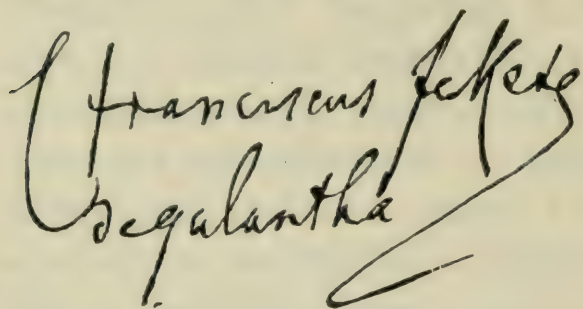 Franciscus Fekete
degalantha